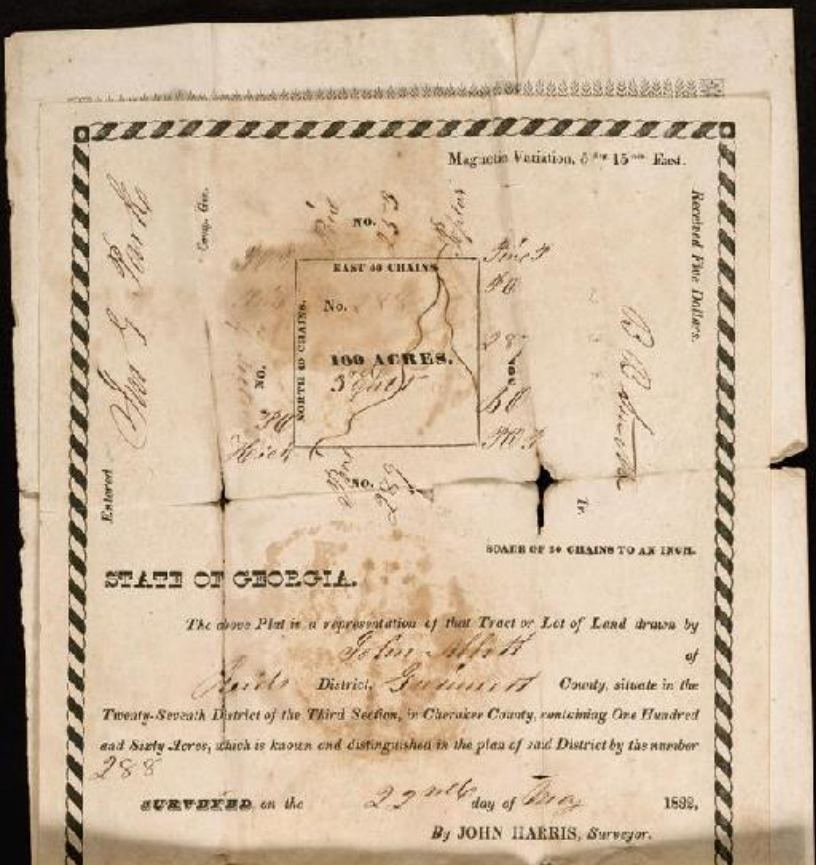 Magnetic Variation, 5 deg 15 min East.
NO. 253
EAST 40 CHAINS
NORTH 40 CHAINS.
No. 288
160 ACRES.
3d quality
NO.
NO. 287
Pine
PO
PO
Hick
NO.
Comp. Gen.
Entered
Received Five Dollars.
Tr.
SCALE OF 20 CHAINS TO AN INCH.
STATE OF GEORGIA.
The above Plat is a representation of that Tract or Lot of Land drawn by
John Abbott of
Reids District, Gwinnett County, situate in the
Twenty-Seventh District of the Third Section, in Cherokee County, containing One Hundred
and Sixty Acres, which is known and distinguished in the plan of said District by the number
288
SURVEYED on the 22nd day of May 1832,
By JOHN HARRIS, Surveyor.